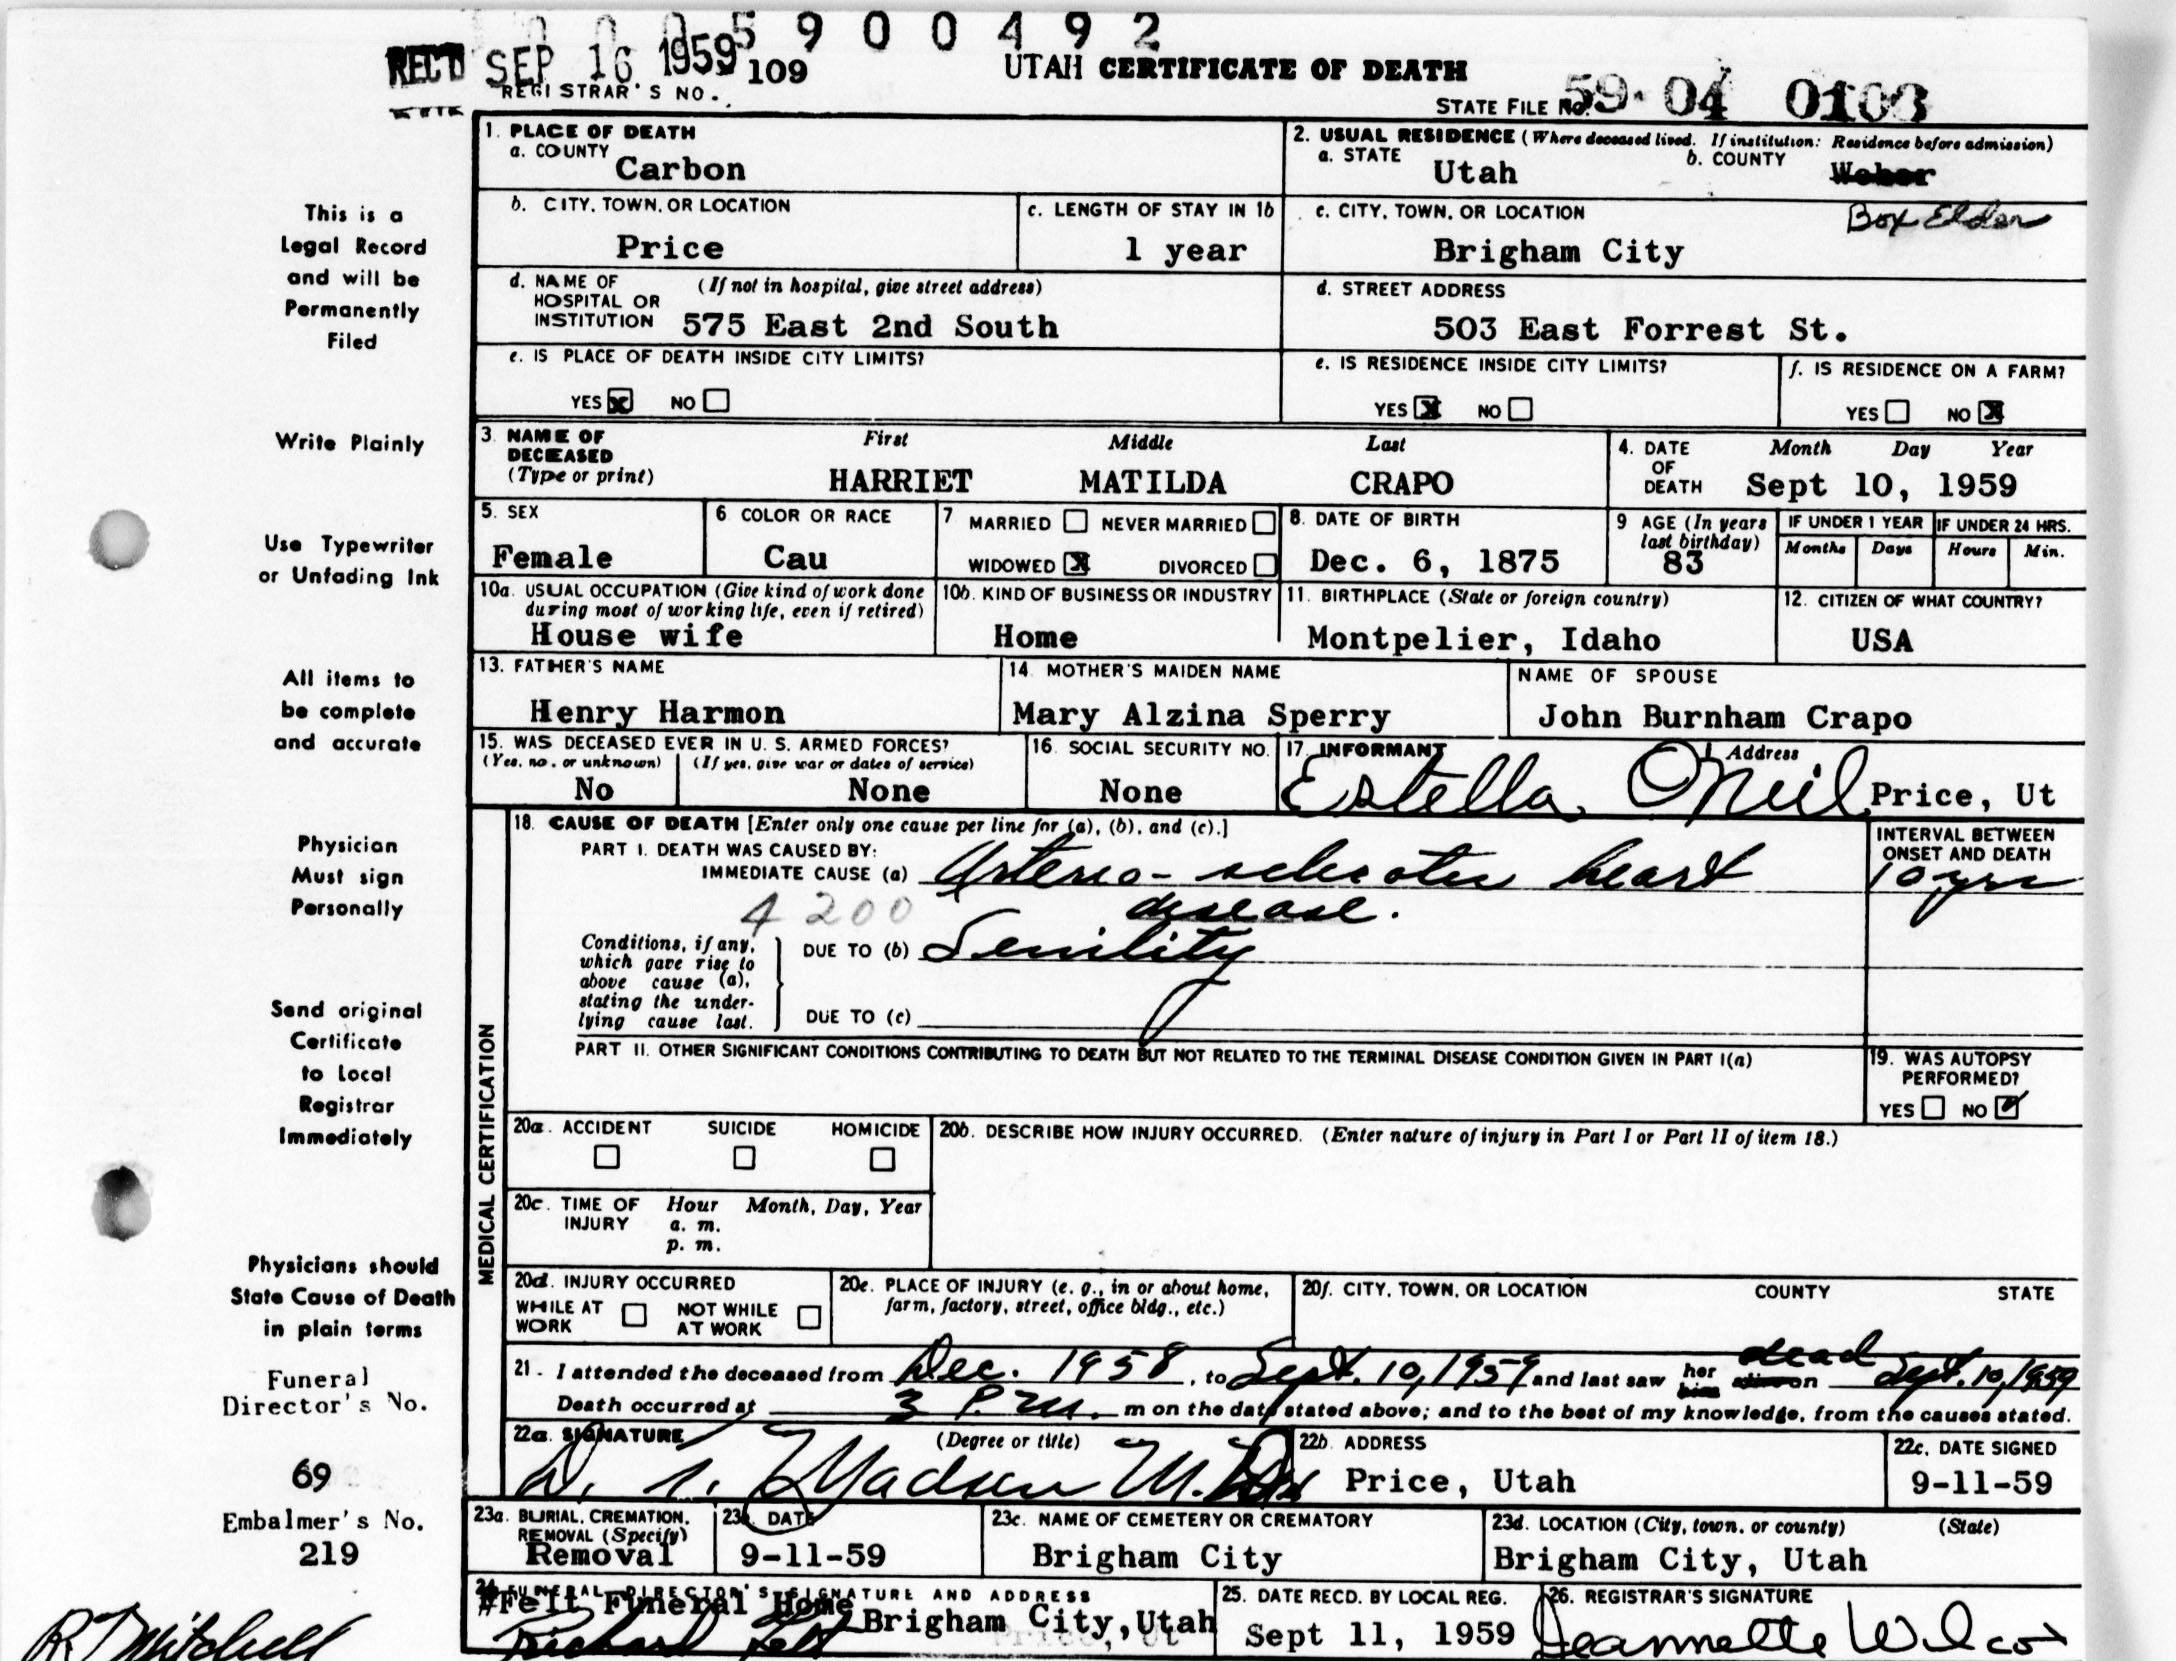 5 9 0 0 4 9 2
REC'D SEP 16 1959 109 UTAH CERTIFICATE OF DEATH
REGISTRAR'S NO. STATE FILE NO. 59-04
1. PLACE OF DEATH 2. USUAL RESIDENCE (Where deceased lived. If institution: Residence before admission)
a. COUNTY Carbon a. STATE Utah b. COUNTY Weber
b. CITY, TOWN, OR LOCATION c. LENGTH OF STAY IN 1b c. CITY, TOWN, OR LOCATION Box Elder
Price 1 year Brigham City
d. NAME OF HOSPITAL OR INSTITUTION (If not in hospital, give street address) d. STREET ADDRESS
575 East 2nd South 503 East Forrest St.
e. IS PLACE OF DEATH INSIDE CITY LIMITS? e. IS RESIDENCE INSIDE CITY LIMITS? f. IS RESIDENCE ON A FARM?
YES X NO YES X NO YES NO X
3. NAME OF DECEASED (Type or print) First Middle Last 4. DATE OF DEATH Month Day Year
HARRIET MATILDA CRAPO Sept 10, 1959
5. SEX 6 COLOR OR RACE 7 MARRIED NEVER MARRIED 8. DATE OF BIRTH 9 AGE (In years last birthday) IF UNDER 1 YEAR IF UNDER 24 HRS.
Months Days Hours Min.
Female Cau WIDOWED X DIVORCED Dec. 6, 1875 83
10a. USUAL OCCUPATION (Give kind of work done during most of working life, even if retired) 10b. KIND OF BUSINESS OR INDUSTRY 11. BIRTHPLACE (State or foreign country) 12. CITIZEN OF WHAT COUNTRY?
House wife Home Montpelier, Idaho USA
13. FATHER'S NAME 14. MOTHER'S MAIDEN NAME NAME OF SPOUSE
Henry Harmon Mary Alzina Sperry John Burnham Crapo
15. WAS DECEASED EVER IN U. S. ARMED FORCES? 16. SOCIAL SECURITY NO. 17. INFORMANT Address
(Yes, no, or unknown) (If yes, give war or dates of service)
No None None Estella O'Neil Price, Ut
18. CAUSE OF DEATH [Enter only one cause per line for (a), (b), and (c).] INTERVAL BETWEEN ONSET AND DEATH
PART I. DEATH WAS CAUSED BY:
IMMEDIATE CAUSE (a) Arterio-sclerotic heart 10 yrs
4200 disease.
Conditions, if any, which gave rise to above cause (a), stating the underlying cause last.
DUE TO (b) Senility
DUE TO (c)
PART II. OTHER SIGNIFICANT CONDITIONS CONTRIBUTING TO DEATH BUT NOT RELATED TO THE TERMINAL DISEASE CONDITION GIVEN IN PART I(a) 19. WAS AUTOPSY PERFORMED?
YES NO ✓
MEDICAL CERTIFICATION
20a. ACCIDENT SUICIDE HOMICIDE 20b. DESCRIBE HOW INJURY OCCURRED. (Enter nature of injury in Part I or Part II of item 18.)
20c. TIME OF INJURY Hour Month, Day, Year
a. m.
p. m.
20d. INJURY OCCURRED 20e. PLACE OF INJURY (e. g., in or about home, farm, factory, street, office bldg., etc.) 20f. CITY, TOWN, OR LOCATION COUNTY STATE
WHILE AT WORK NOT WHILE AT WORK
21. I attended the deceased from Dec. 1958, to Sept. 10, 1959 and last saw her him dead alive on Sept. 10, 1959
Death occurred at 3 P.M. m on the date stated above; and to the best of my knowledge, from the causes stated.
22a. SIGNATURE (Degree or title) 22b. ADDRESS 22c. DATE SIGNED
Madsen M.D. Price, Utah 9-11-59
23a. BURIAL, CREMATION, REMOVAL (Specify) 23b. DATE 23c. NAME OF CEMETERY OR CREMATORY 23d. LOCATION (City, town, or county) (State)
Removal 9-11-59 Brigham City Brigham City, Utah
24. FUNERAL DIRECTOR'S SIGNATURE AND ADDRESS 25. DATE RECD. BY LOCAL REG. 26. REGISTRAR'S SIGNATURE
#Felt Funeral Home Brigham City, Utah
Richard Felt Sept 11, 1959 Jeannette Wilcox
This is a
Legal Record
and will be
Permanently
Filed
Write Plainly
Use Typewriter
or Unfading Ink
All items to
be complete
and accurate
Physician
Must sign
Personally
Send original
Certificate
to Local
Registrar
Immediately
Physicians should
State Cause of Death
in plain terms
Funeral
Director's No.
69
Embalmer's No.
219
R T Mitchell